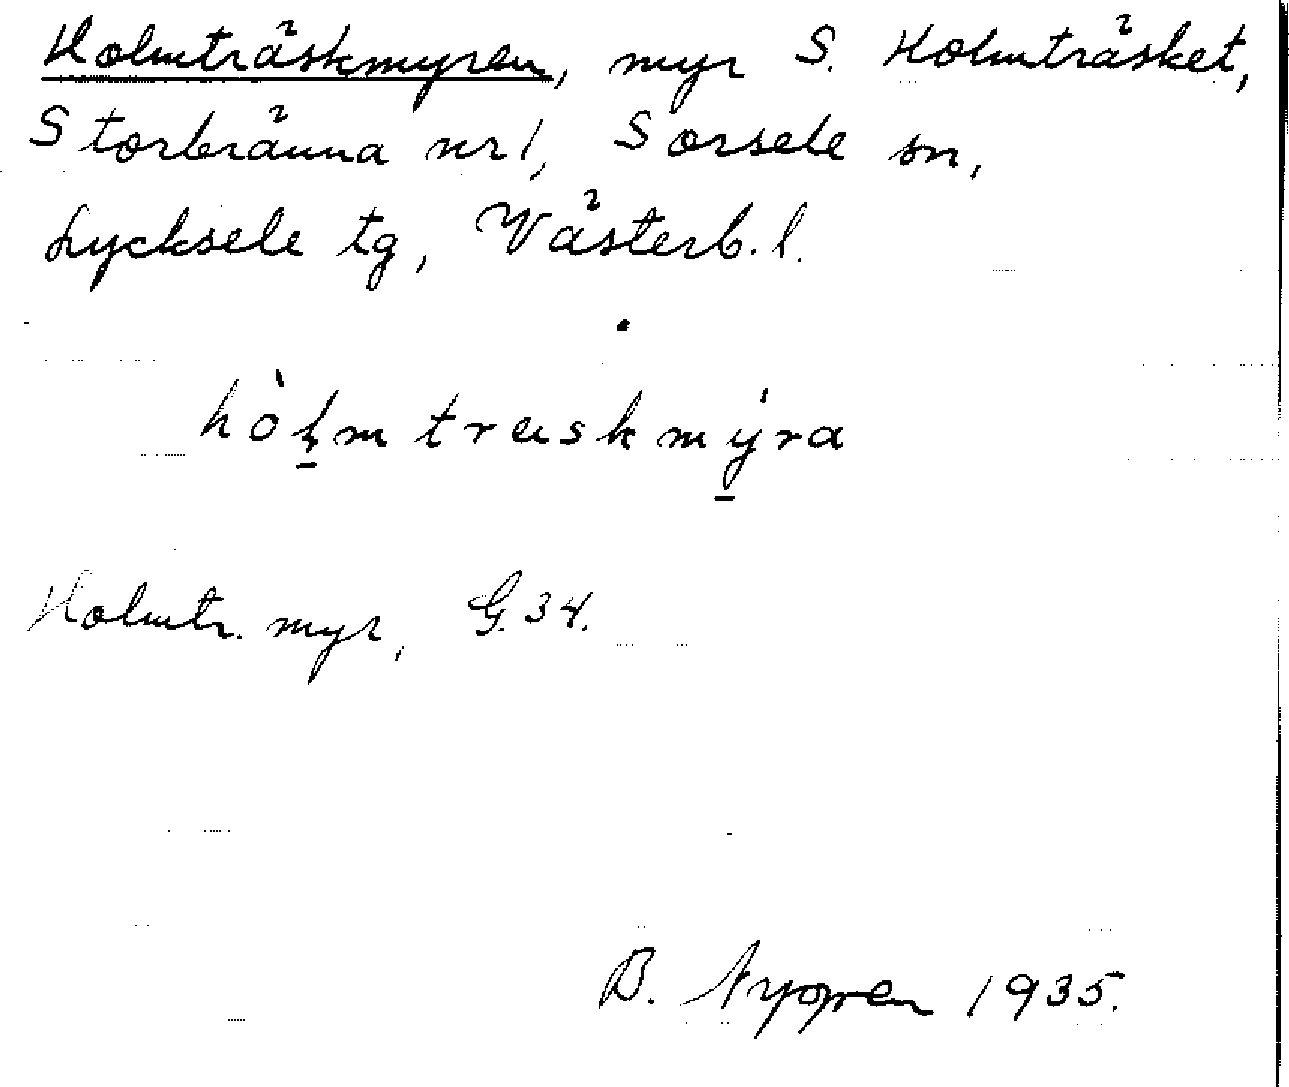 Holmträskmyren, myr S. Holmträsket,
Storbränna nr 1, Sorsele sn,
Lycksele tg, Västerb. l.
hòl̠mtræskmý̠ra
Holmtr. myr, G. 34.
B. Nygren 1935.